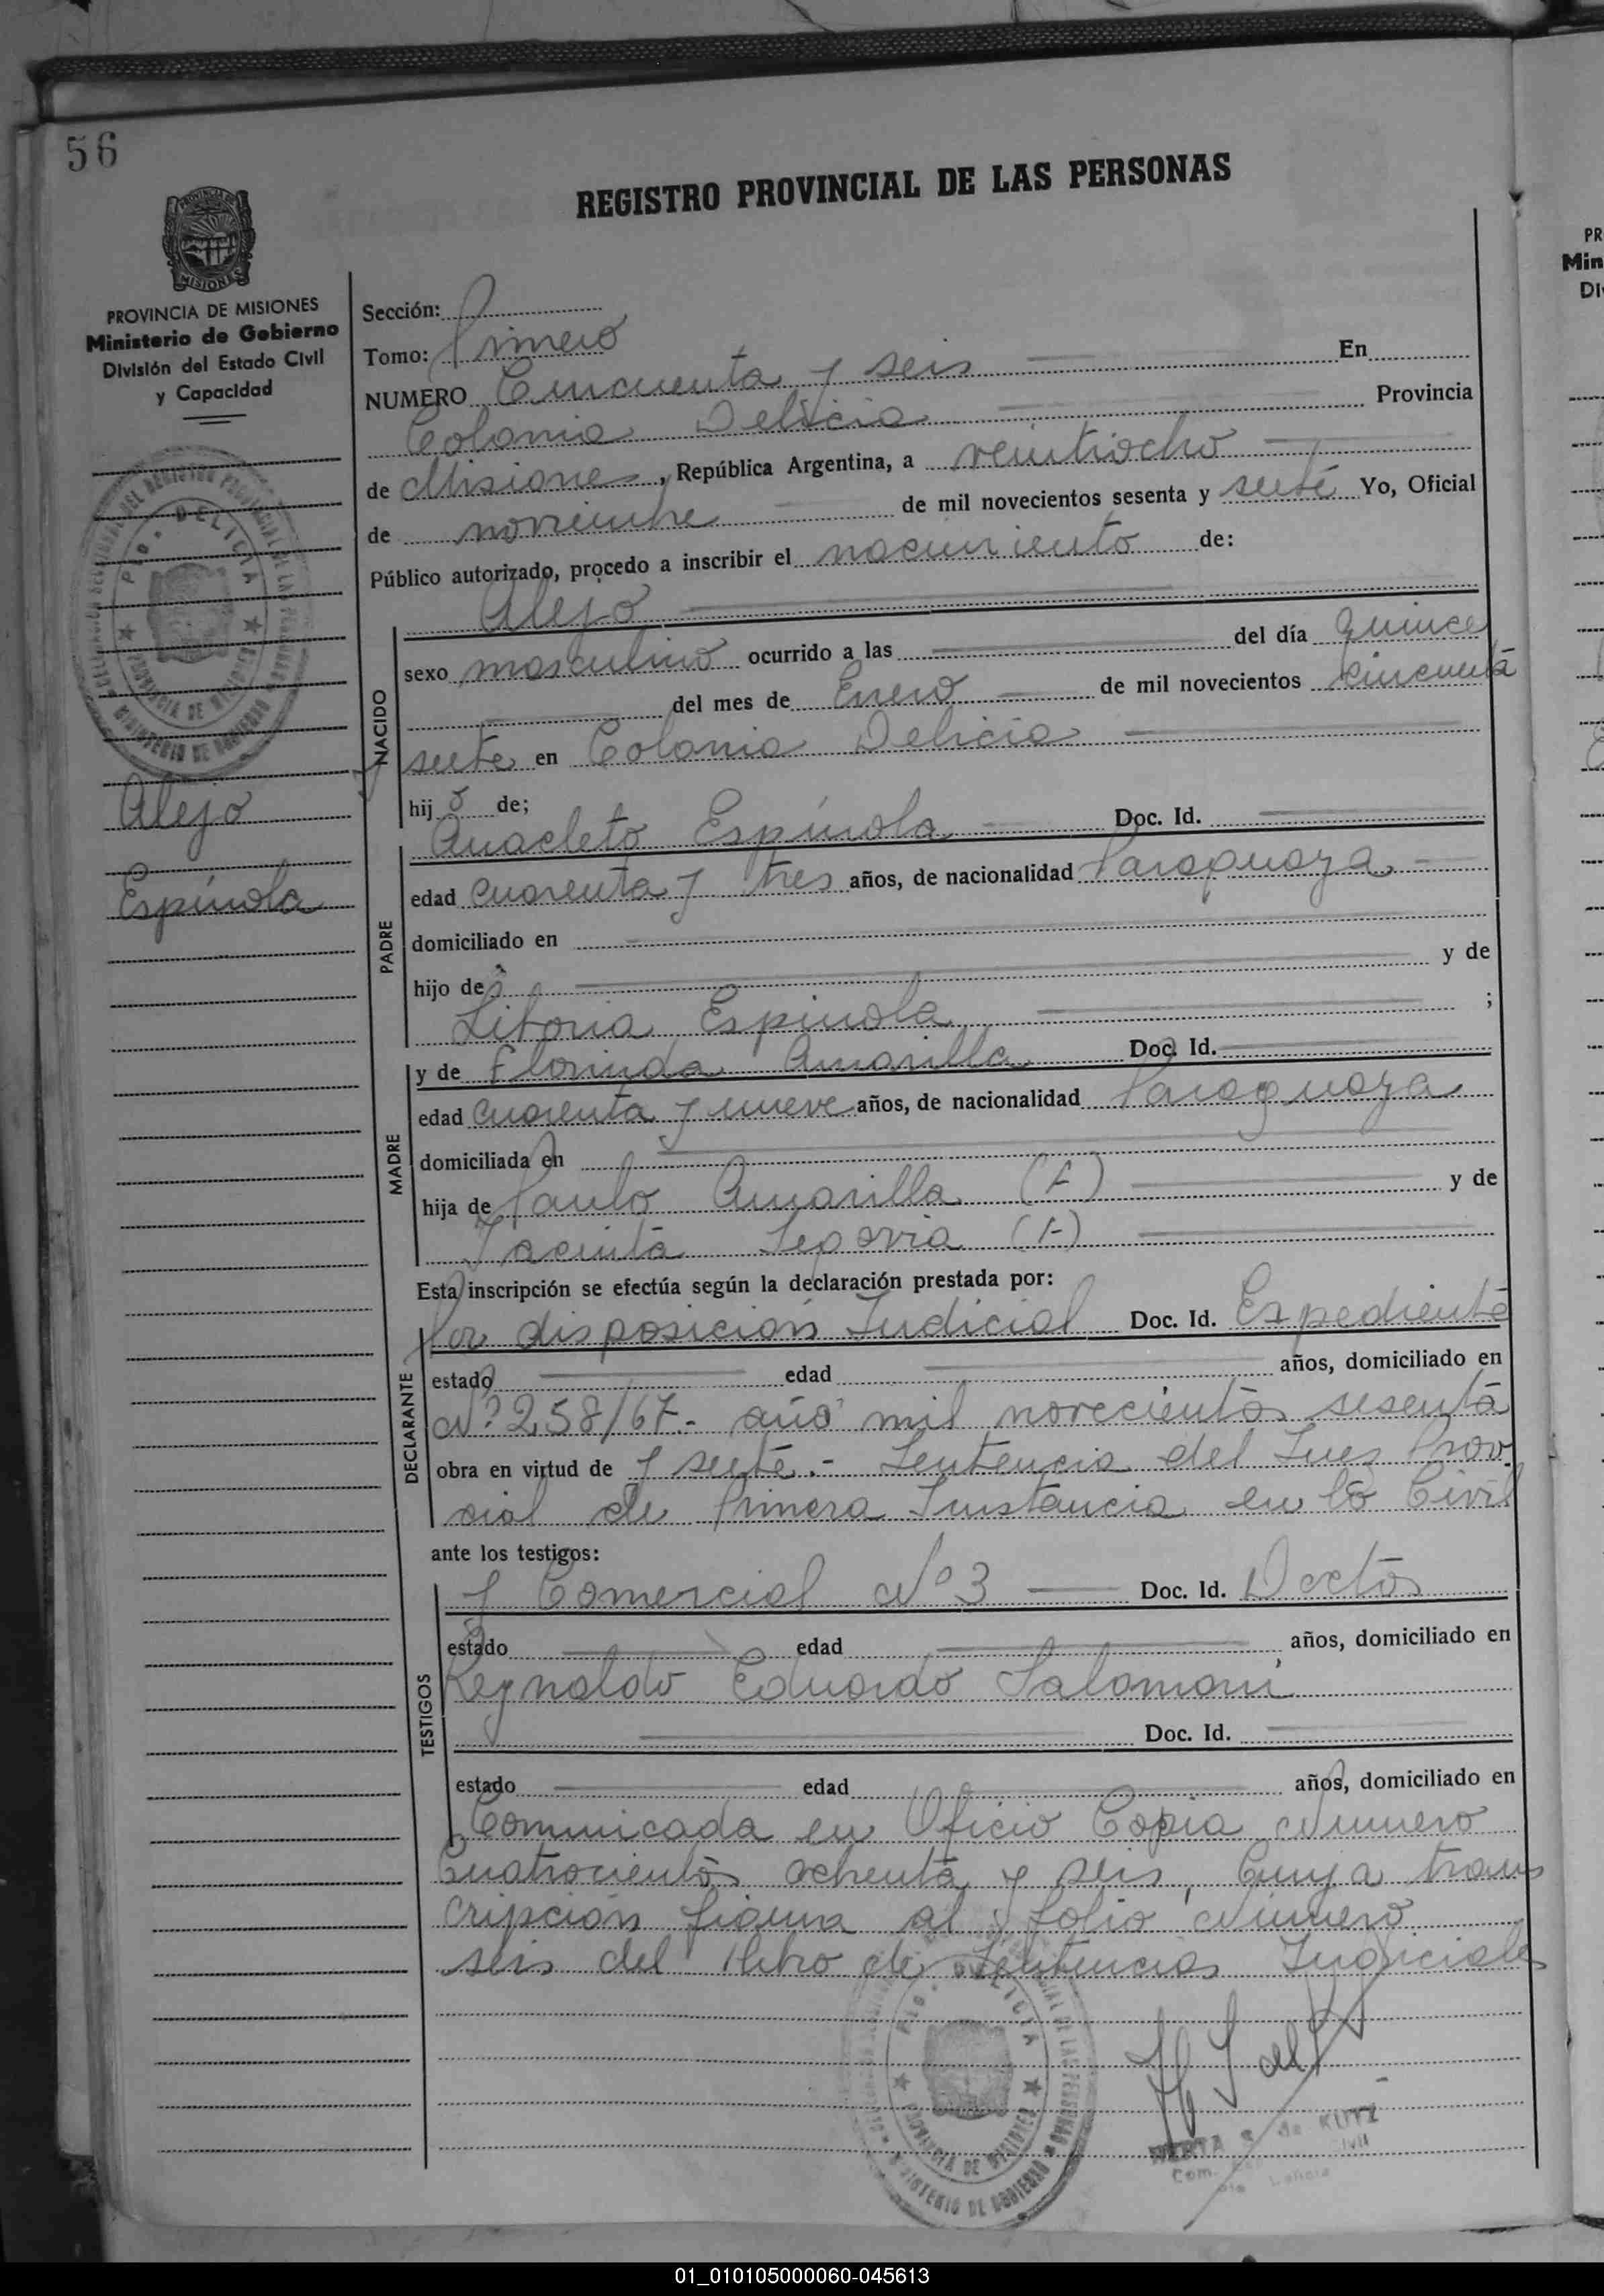 56
REGISTRO PROVINCIAL DE LAS PERSONAS
PROVINCIA DE MISIONES
Ministerio de Gobierno
División del Estado Civil
y Capacidad
Alejo
Espínola
Sección:
Tomo: Primero
NUMERO Cincuenta y seis En
Colonia Delicia Provincia
de Misiones, República Argentina, a veintiocho
de noviembre de mil novecientos sesenta y siete Yo, Oficial
Público autorizado, procedo a inscribir el nacimiento de:
Alejo
NACIDO
sexo masculino ocurrido a las del día quince
del mes de Enero de mil novecientos cincuenta
y siete en Colonia Delicia
hijo de;
Anacleto Espínola Doc. Id.
PADRE
edad cuarenta y tres años, de nacionalidad Paraguaya
domiciliado en
hijo de y de
Espinola ;
y de Florinda Amarilla Doc. Id.
MADRE
edad cuarenta y nueve años, de nacionalidad Paraguaya
domiciliada en
hija de Paulo Amarilla (f) y de
Jacinta Segovia (f)
Esta inscripción se efectúa según la declaración prestada por:
Por disposición Judicial Doc. Id. Expediente
DECLARANTE
estado edad años, domiciliado en
Nº 258/67.- año mil novecientos sesenta
obra en virtud de y siete.- Sentencia del Juez Prov.
cial de Primera Instancia en lo Civil
ante los testigos:
y Comercial Nº 3 Doc. Id. Doctos
TESTIGOS
estado edad años, domiciliado en
Reynaldo Eduardo Salomoni
Doc. Id.
estado edad años, domiciliado en
Comunicada en Oficio Copia Numero
Cuatrocientos ochenta y seis, Cuya trans
cripción figura al folio Numero
seis del libro de Sentencias Judiciales
PTO. DELICIA
PROVINCIA DE MISIONES
MINISTERIO DE GOBIERNO
HERTA S. de KLITZ
01_010105000060-045613